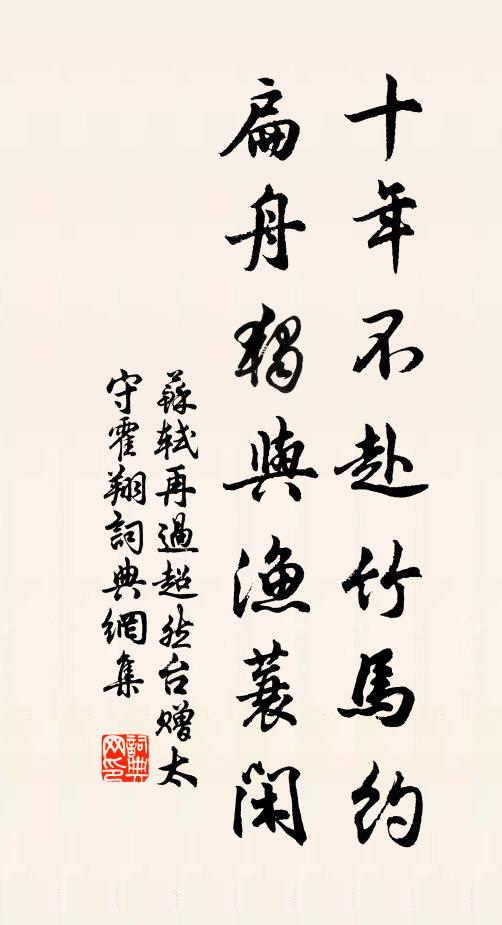 十年不赴竹馬約
扁舟獨與漁蓑閑
蘇軾再過超然台贈太
守霍翔詞典網集
詞典
网印